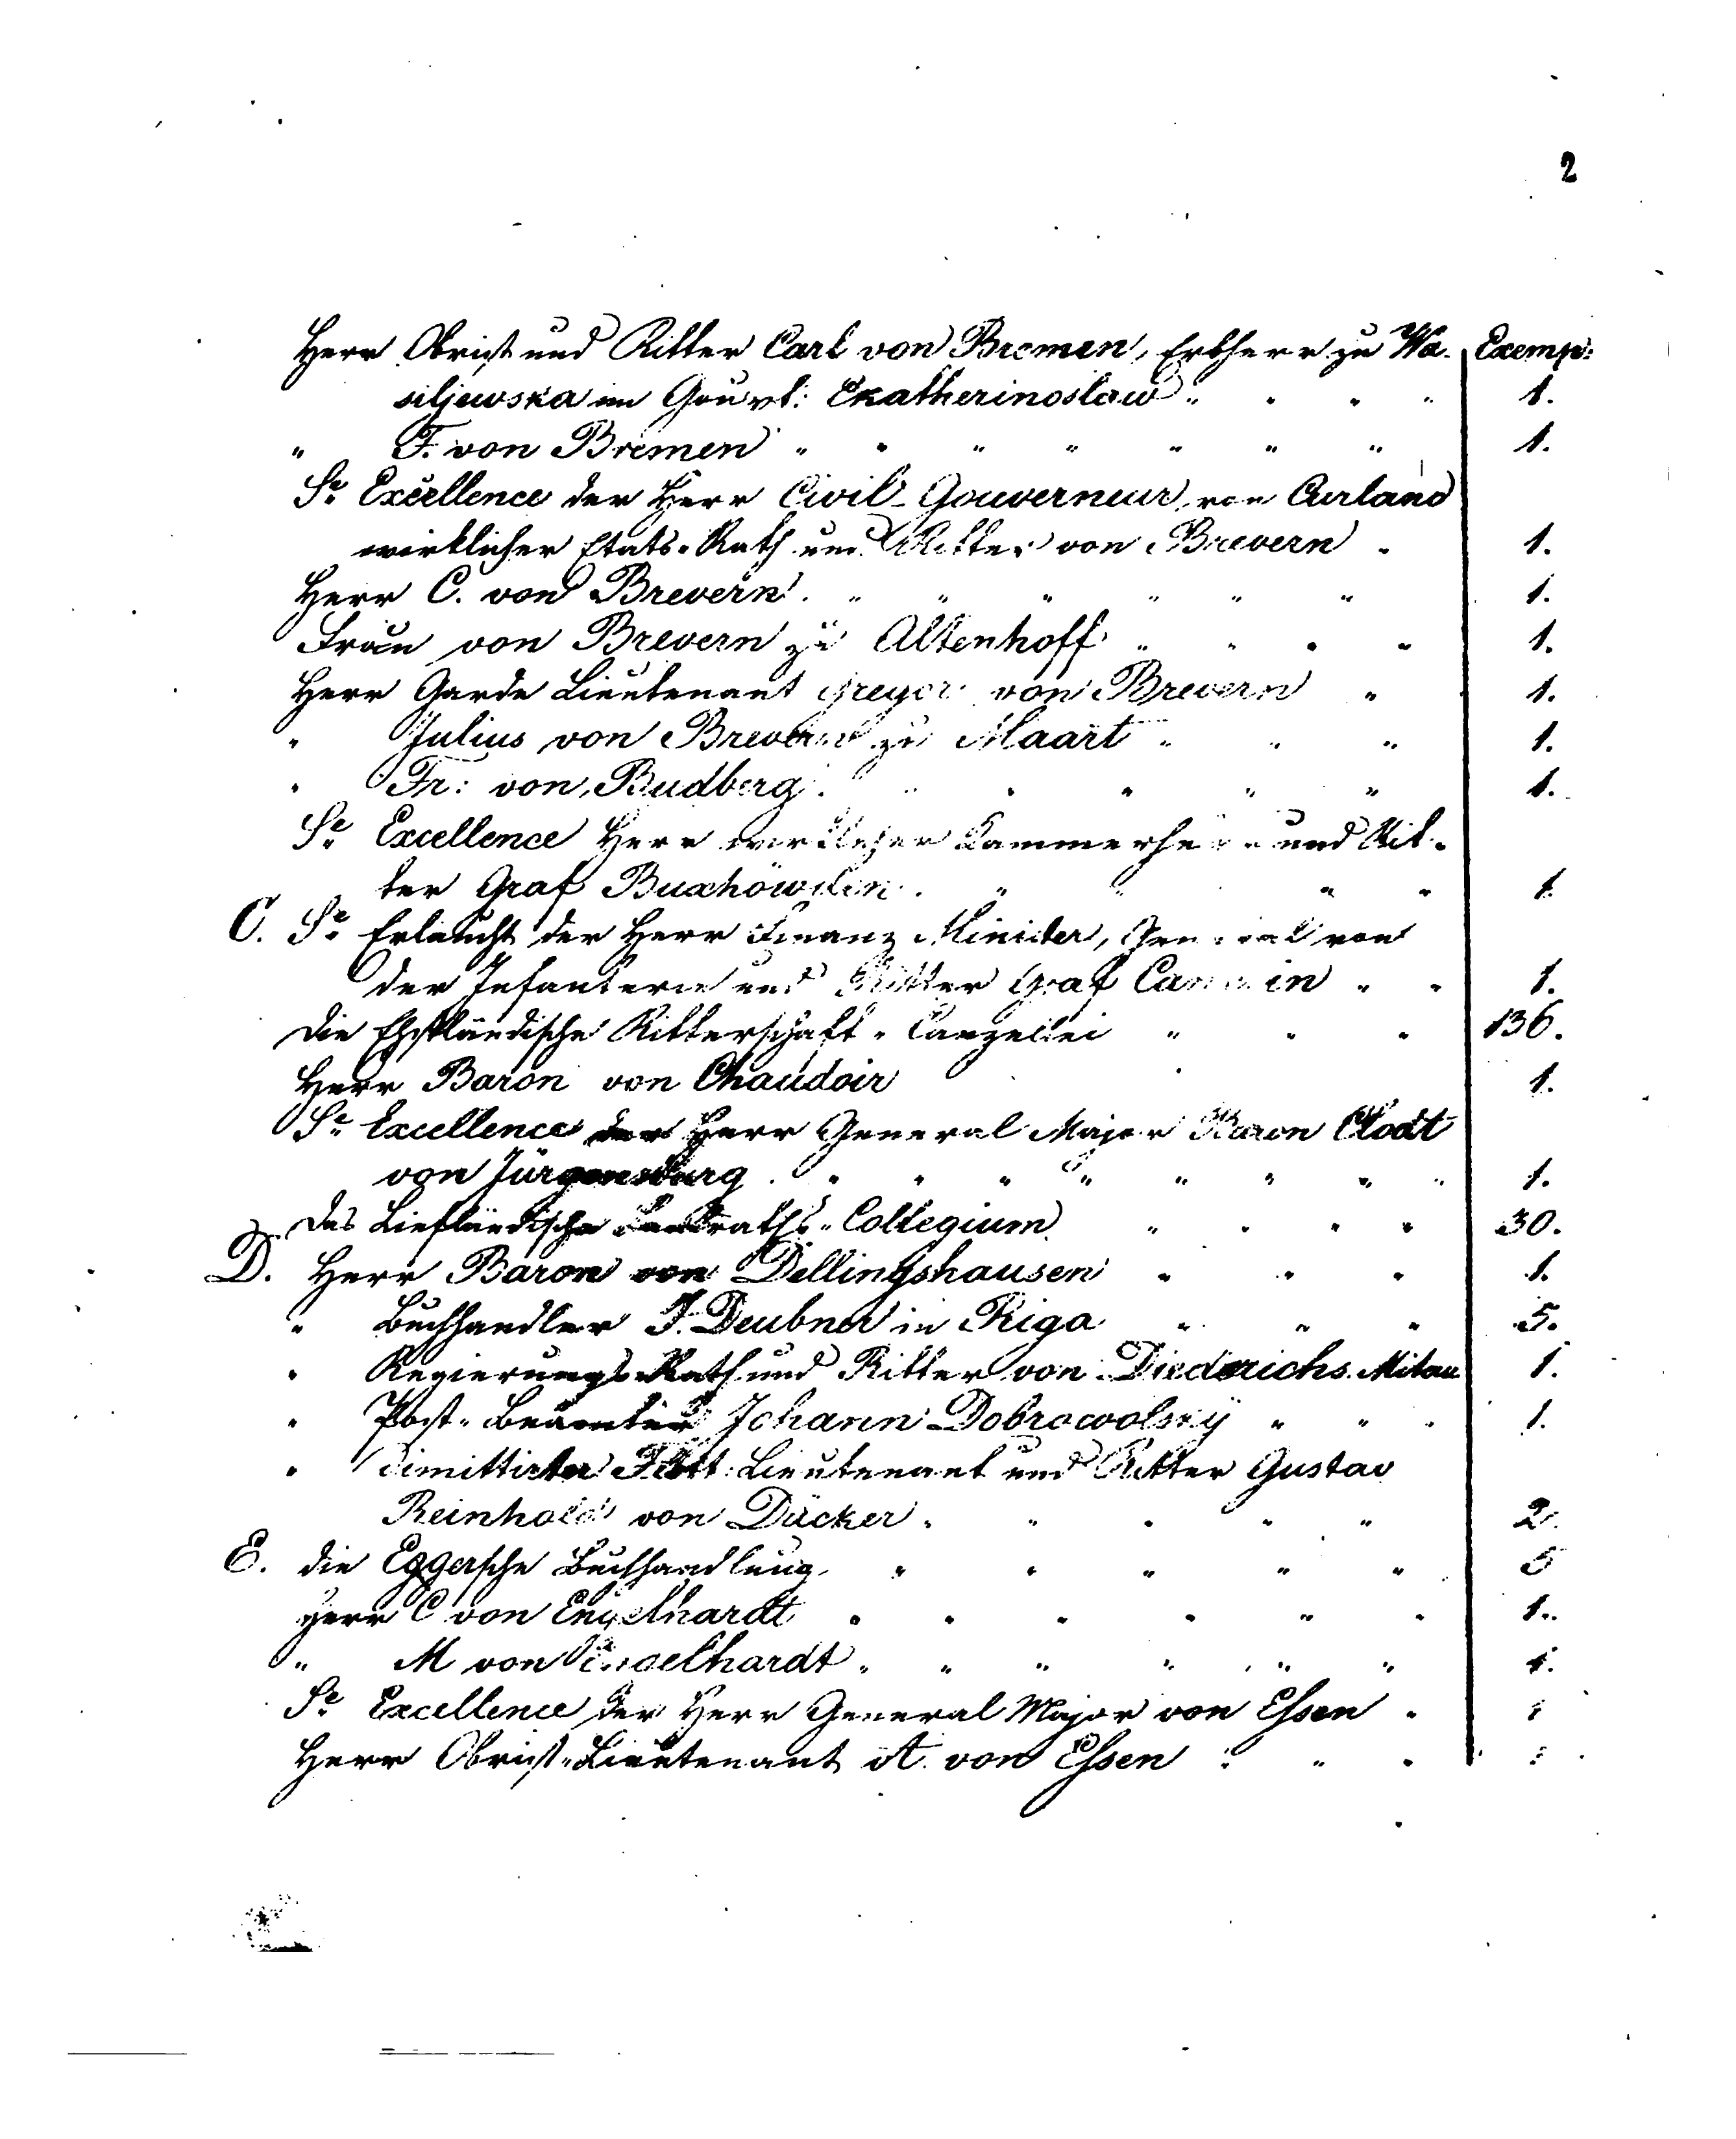 2
Herr Obrist und Ritter Carl von Bremen, Erbherr zu Wa- Exemp:
siljewska im Gouvt: Ekatherinoslaw " " " " 1.
" F. von Bremen " " " " " " " 1.
Se Excellence der Herr Civil-Gouverneur von Curland
wirklicher Etats-Rath und Ritter von Brevern " 1.
Herr C. von Brevern " " " " " " 1.
Frau von Brevern zu Altenhoff " " " " 1.
Herr Garde Lieutenant Gregor von Brevern " 1.
" Julius von Brevern zu Maart " " " 1.
" Fr: von Budberg " " " " " 1.
Se Excellence Herr wirklicher Kammerherr und Rit-
ter Graf Buxhöwden " " " " 1
C. Se Erlaucht der Herr Finanz Minister, General von
der Infanterie und Ritter Graf Cancrin " " 1.
die Ehstländische Ritterschaft-Canzellei " " " 136.
Herr Baron von Chaudoir 1.
Se Excellence der Herr General Major Baron Clodt
von Jürgensburg " " " " " " " " 1.
das Liefländische Landraths-Collegium " " " " 30.
D. Herr Baron von Dellingshausen " " " 1.
" Buchhandler J. Deubner in Riga " " " 5.
" Regierungs-Rath und Ritter von Diederichs Mitau 1.
" Post-Beamter Johann Dobrowolsky " " " 1.
" dimittirter Lieutenant und Ritter Gustav
Reinhold von Dücker " " " " " 2.
E. die Eggersche Buchhandlung " " " " " 5
Herr C von Engelhardt " " " " " " 1.
" M von Engelhardt " " " " " " 1.
Se Excellence der Herr General Major von Essen "
Herr Obrist-Lieutenant A. von Essen " " "